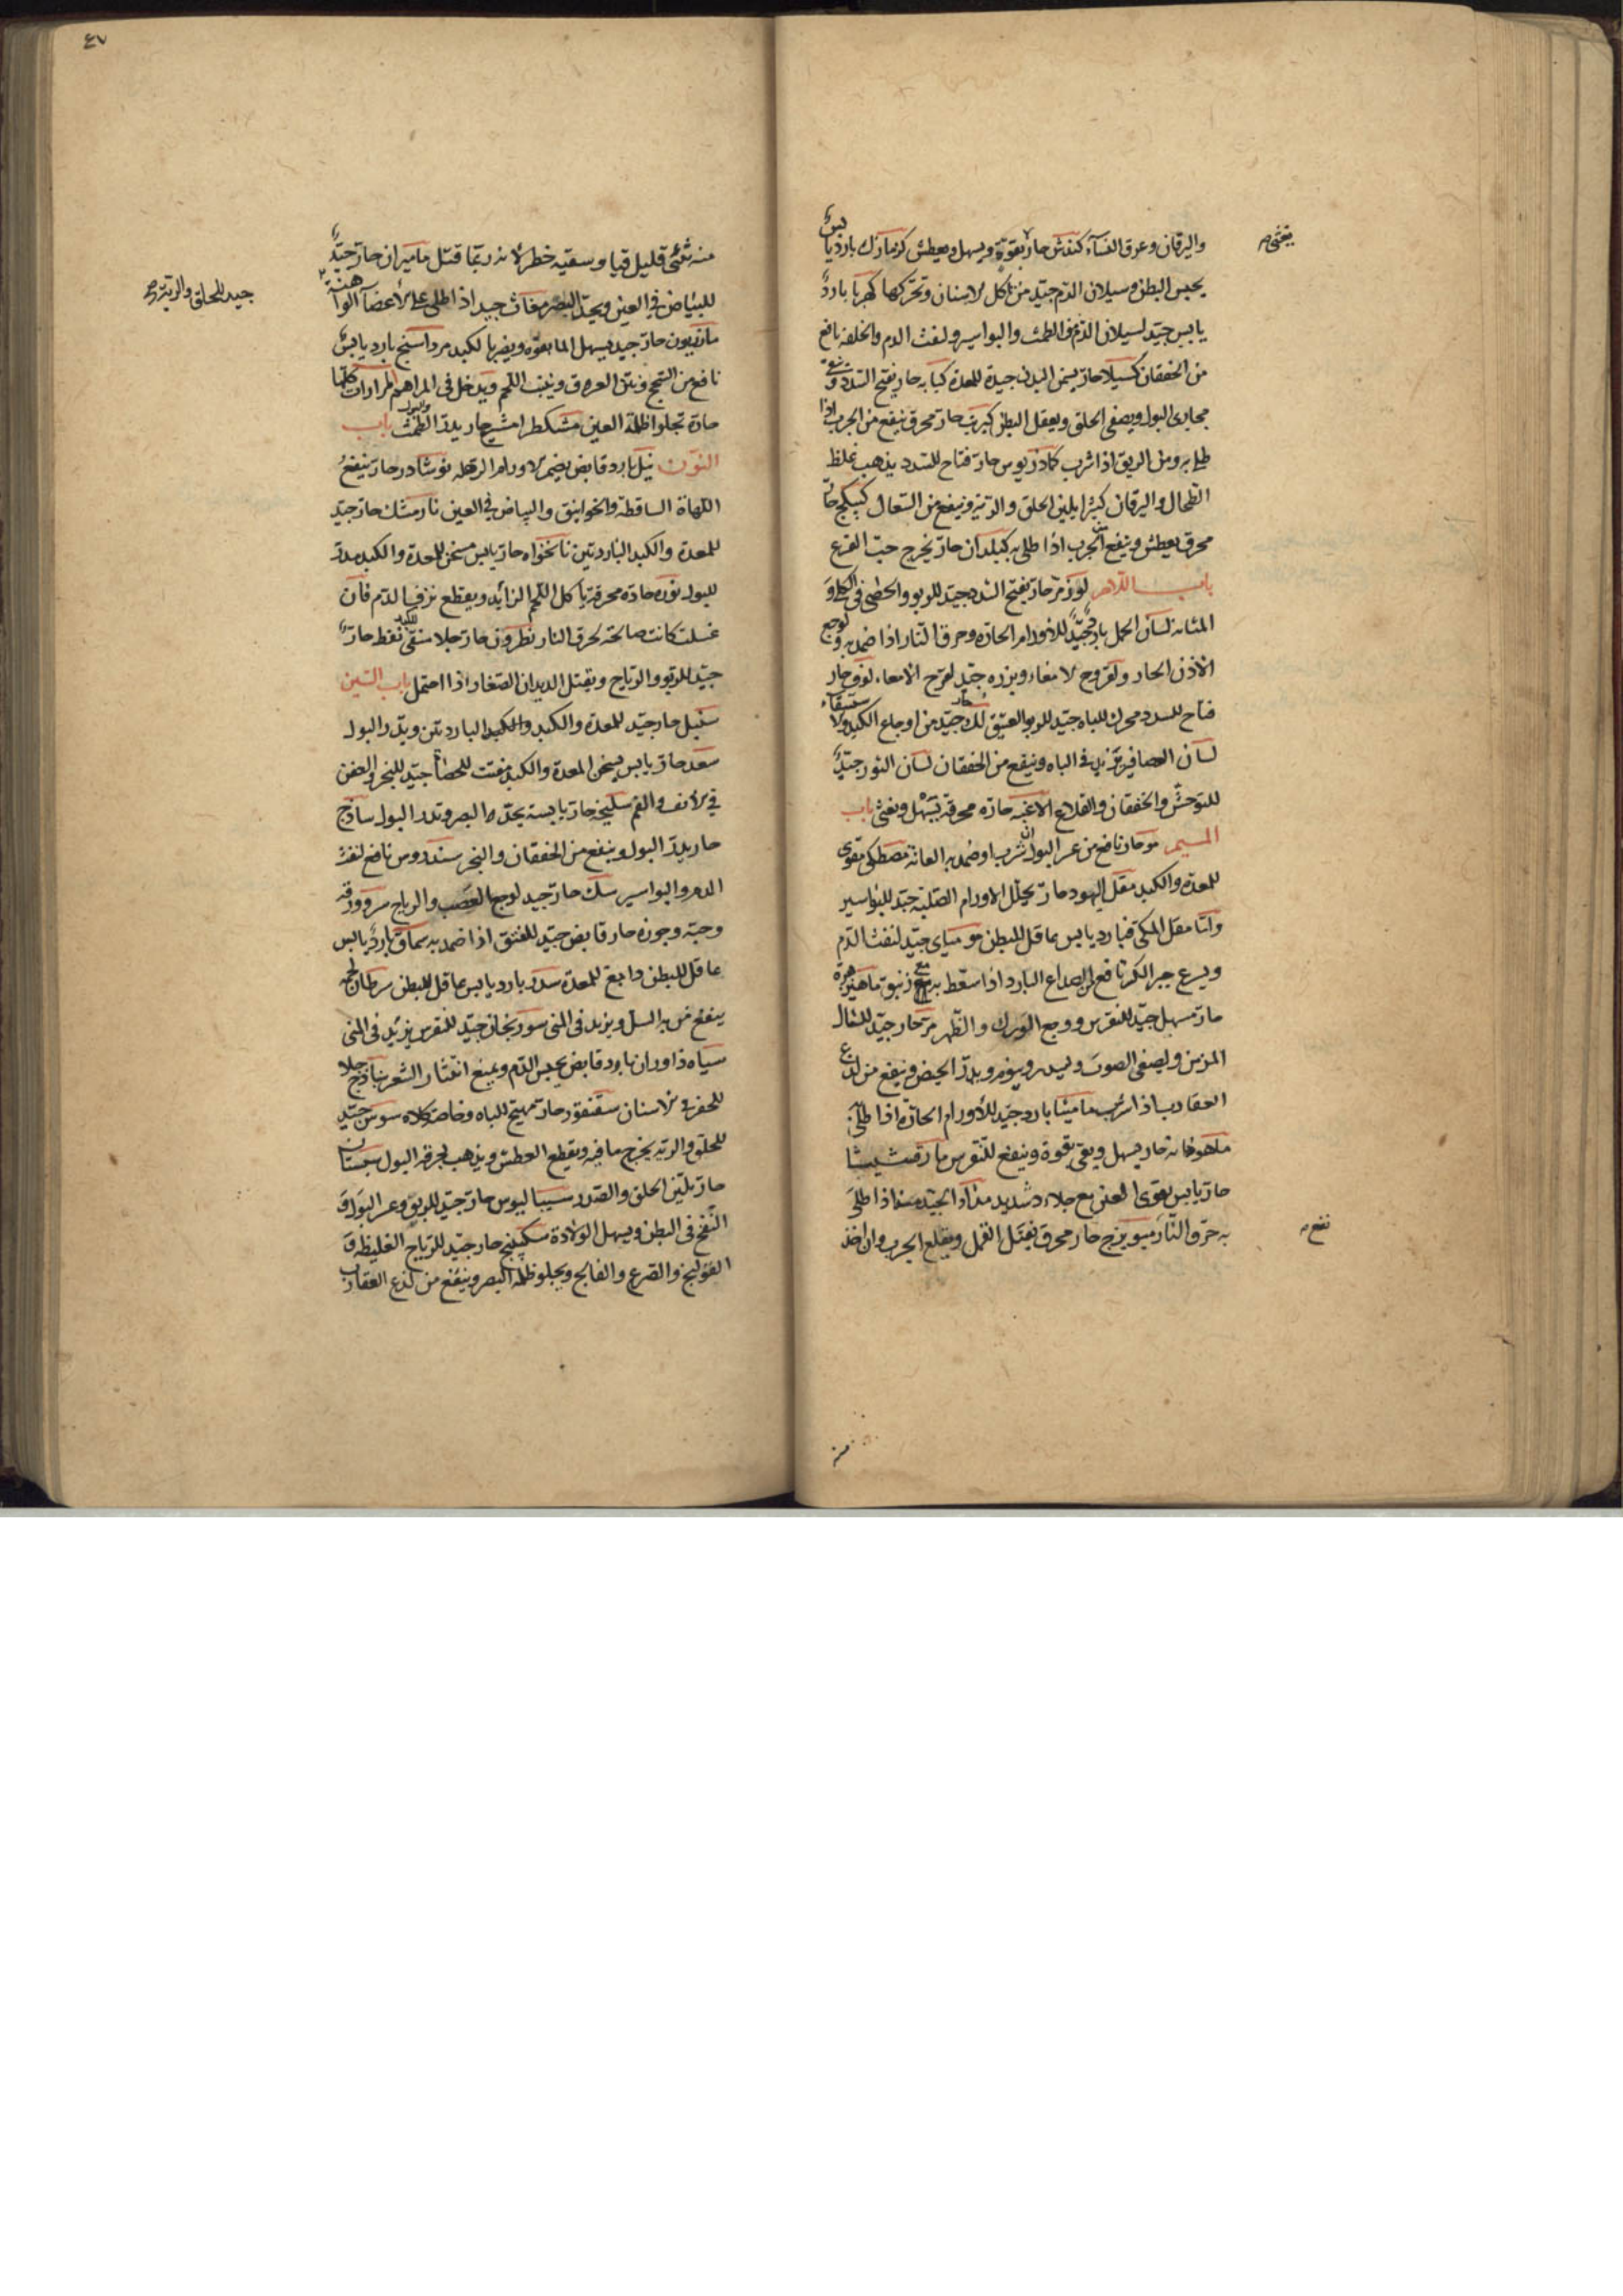 يغثى
واليرقان وعرق النساء كندش حار يقوة ويسهل ويعطش كزمازك بارد يابس
يحبس البطن وسيلان الدم جيد من تاكل الاسنان وتحركها كهربا بارد
يابس جيد لسيلان الدم والطمث والبواسير ولنفث الدم والخلفة نافع
من الخفقان كسيلا حار يسمن البدن جيدة للمعدة كبابه حار يفتح السدد وينقى
مجارى البول ويصفى الحلق ويعقل البطن كبريت حار محرق ينفع من الجرب اذا
طلى به ومن البهق اذا شرب كمادريوس حار فتاح للسدد يذهب غلظ
الطحال واليرقان كثيرا يلين الحلق والرية وينفع من السعال كبيكج حار
محرق يعطش وينفع الجرب اذا طلى به كبيلدان حار يخرج حب القرع
باب اللام لوز مر حار يفتح السدد جيد للربو والحصى فى الكلى و
المثانه لسان الحمل بارد جيد للاورام الحارة وحرق النار اذا ضمد به ولوجع
الاذن الحار ولقروح الامعاء وبزره جيد لقرح الامعاء لوف حار
فتاح للسدد محرك للباه جيد للربو العتيق لك حار جيد من اوجاع الكبد والاستسقاء
لسان العصافير يزيد فى الباه وينفع من الخفقان لسان الثور جيد
للتوحش والخفقان والقلاع الاغيه حارة محرقة يسهل ويغثى باب
الميم مو حار نافع من عسر البول ان شرب او ضمد به العانة مصطكى مقوى
للمعدة والكبد مقل اليهود حار يحلل الاورام الصلبة جيد للبواسير
واما مقل المكى فبارد يابس عاقل للبطن موميائى جيد لنفث الدم
ويسرع جبر الكسر نافع من الصداع البارد اذا سقط به مع زنبق ماهيزهره
حار مسهل جيد للنقرس ووجع الورك والظهر مر حار جيد للسعال
المزمن ويصفى الصوت ويسدر وينوم ويدر الحيض وينفع من لدغ
العقارب اذا شرب ماميثا بارد جيد للاورام الحارة اذا طلى
ماهودانه حار يسهل ويقى بقوة وينفع للنقرس مارقشيثا
حار يابس يقوى العين مع جلاء وشديد مداد الجيد منه اذا طلى
به حرق النار ميويزج حار محرق يقتل القمل ويقلع الجرب وان اخذ
نفع
منه
٤٧
منه شئ قليل قيا وسقيه خطر لانه ربما قتل ماميران حار جيد
للبياض فى العين ويحد البصر مغاث جيد اذا طلى على الاعضا الواهنة
جيد للحلق والرية
مازريون حار جيد يسهل الما بقوة ويضر بالكبد مرداسنج بارد يابس
نافع من السحج ونتن العرق وينبت اللحم ويدخل فى المراهم المرارات كلها
حارة تجلو اظلمة العين مشكطرامشيع حار يدر الطمث والبول باب
النون نيل بارد قابض يضمر الاورام الرهله نوشادر حار ينفع
اللهاة الساقطة والخوانيق والبياض فى العين نارمشك حار جيد
للمعدة والكبد الباردتين نانخواه حار يابس مسخن للمعدة والكبد مدر
للبول نوره حارة محرقة تاكل اللحم الزائد ويقطع نزف الدم فان
غسلت كانت صالحة لحرق النار نطرون حار جلا منقى للكبد نفط حار
جيد للربو والرياح ويقتل الديدان الصغار اذا احتمل باب السين
سنبل حار جيد للمعدة والكبد والكبد الباردتين ويدر البول
سعد حار يابس يسخن المعدة والكبد مفتت للحصاة جيد للبخر والعفن
فى الانف والفم سليخه حار يابسة يحد البصر وتدر البول ساذج
حار يدر البول وينفع من الخفقان والبخر سندروس نافع لنفث
الدم والبواسير سك حار جيد لوجع العصب والرياح سرو ورقه
وحبه وجوزه حار قابض جيد للفتق اذا ضمد به سماق بارد يابس
عاقل للبطن دابغ للمعدة سدر بارد يابس عاقل للبطن سرطان لحمه
ينفع من به السل ويزيد فى المنى سورنجان جيد للنقرس يزيد فى المنى
سياه داوران بارد قابض يحبس الدم ويمنع انتثار الشعر سباذج جلا
للحفر فى الاسنان سقنقور حار مهيج للباه وخاصة كلاه سوس جيد
للحلق والرية يخرج ما فيه ويقطع العطش ويذهب بحرقة البول سبستان
حار يلين الحلق والصدر سيساليوس حار جيد للربو وعسر البول و
النفخ فى البطن ويسهل الولادة سكبينج حار جيد للرياح الغليظه و
القولنج والصرع والفالج ويجلو ظلمة البصر وينفع من لذع العقارب